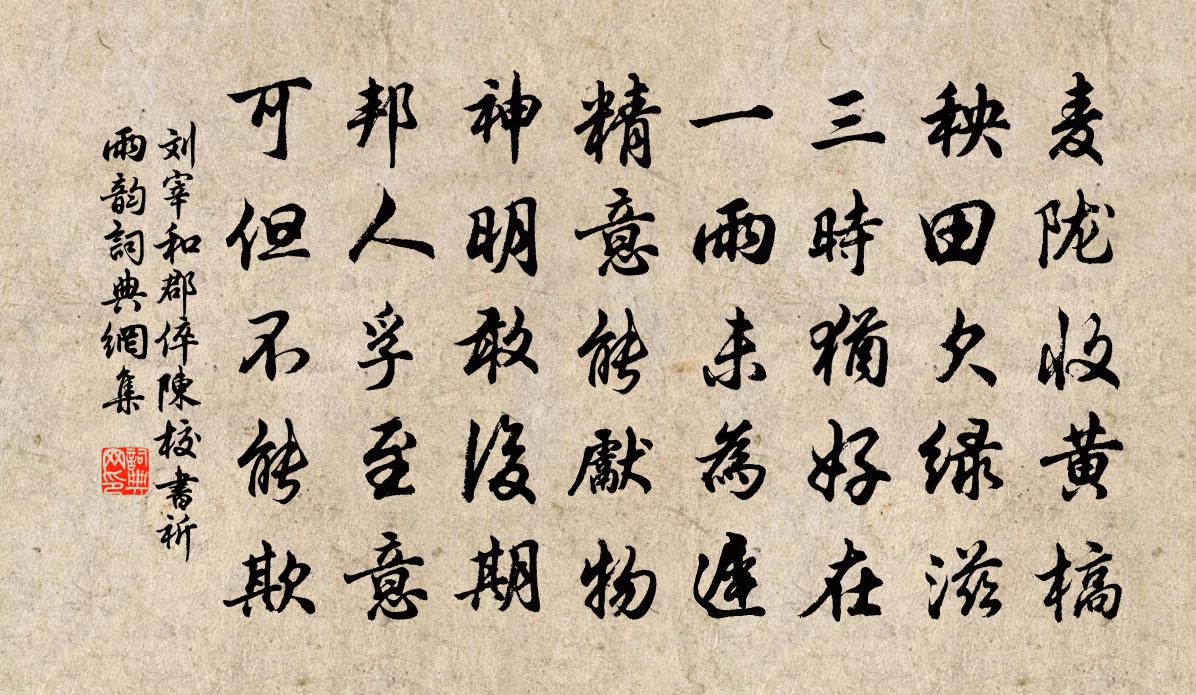 麦陇收黄槁
秧田欠绿滋
三時猶好在
一雨未為遲
精意能獻物
神明敢後期
邦人孚至意
可但不能欺
刘宰和郡倅陳校書祈
雨韵詞典網集
詞典
网印